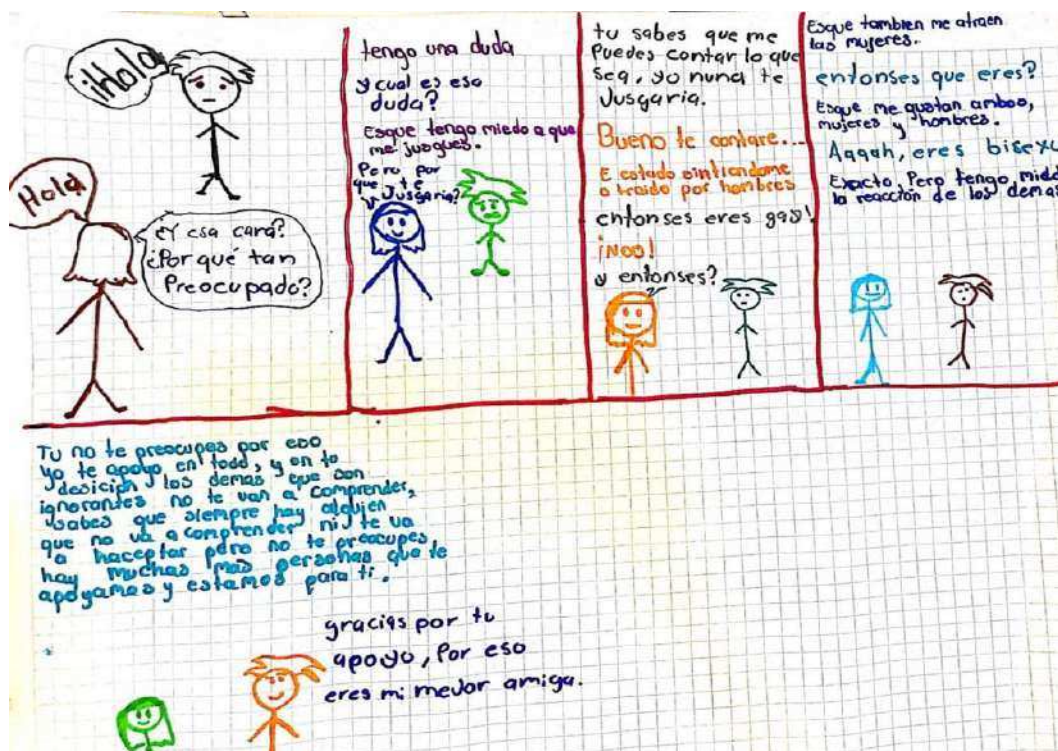 ¡Hola!
Hola
¿Y esa cara?
¿Por qué tan
Preocupado?
tengo una duda
y cual es esa
duda?
Esque tengo miedo a que
me jusgues.
Pero por
que te
Jusgaria?
tu sabes que me
Puedes contar lo que
sea, yo nunca te
Jusgaria.
Bueno te contare...
E estado sintiendome
atraido por hombres
entonses eres gay!
¡NOO!
y entonses?
Esque tambien me atraen
las mujeres.
entonses que eres?
Esque me gustan ambos,
mujeres y hombres.
Aaaah, eres bisexu
Exacto, Pero tengo, miedo
la reacción de los demas
Tu no te preocupes por eso
yo te apoyo en todo, y en tu
desición los demas que son
ignorantes no te van a comprender,
sabes que siempre hay alguien
que no va a comprender ni te va
a haceptar pero no te preocupes,
hay muchas mas personas que te
apoyamos y estamos para ti.
gracias por tu
apoyo, Por eso
eres mi mejor amiga.